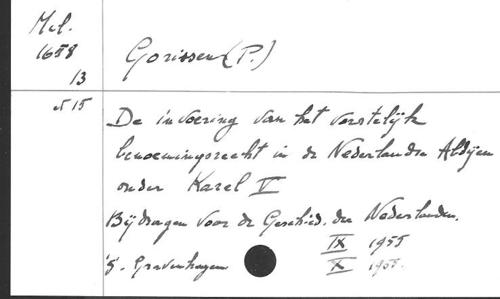 Mel.
1658
13
Gorissen (P.)
n 15
De invoering van het vorstelijk
benoemingsrecht in de Nederlandse Abdijen
onder Karel V
Bijdragen voor de Geschied. der Nederlanden.
IX 1955
's. Gravenhagen X 1955.